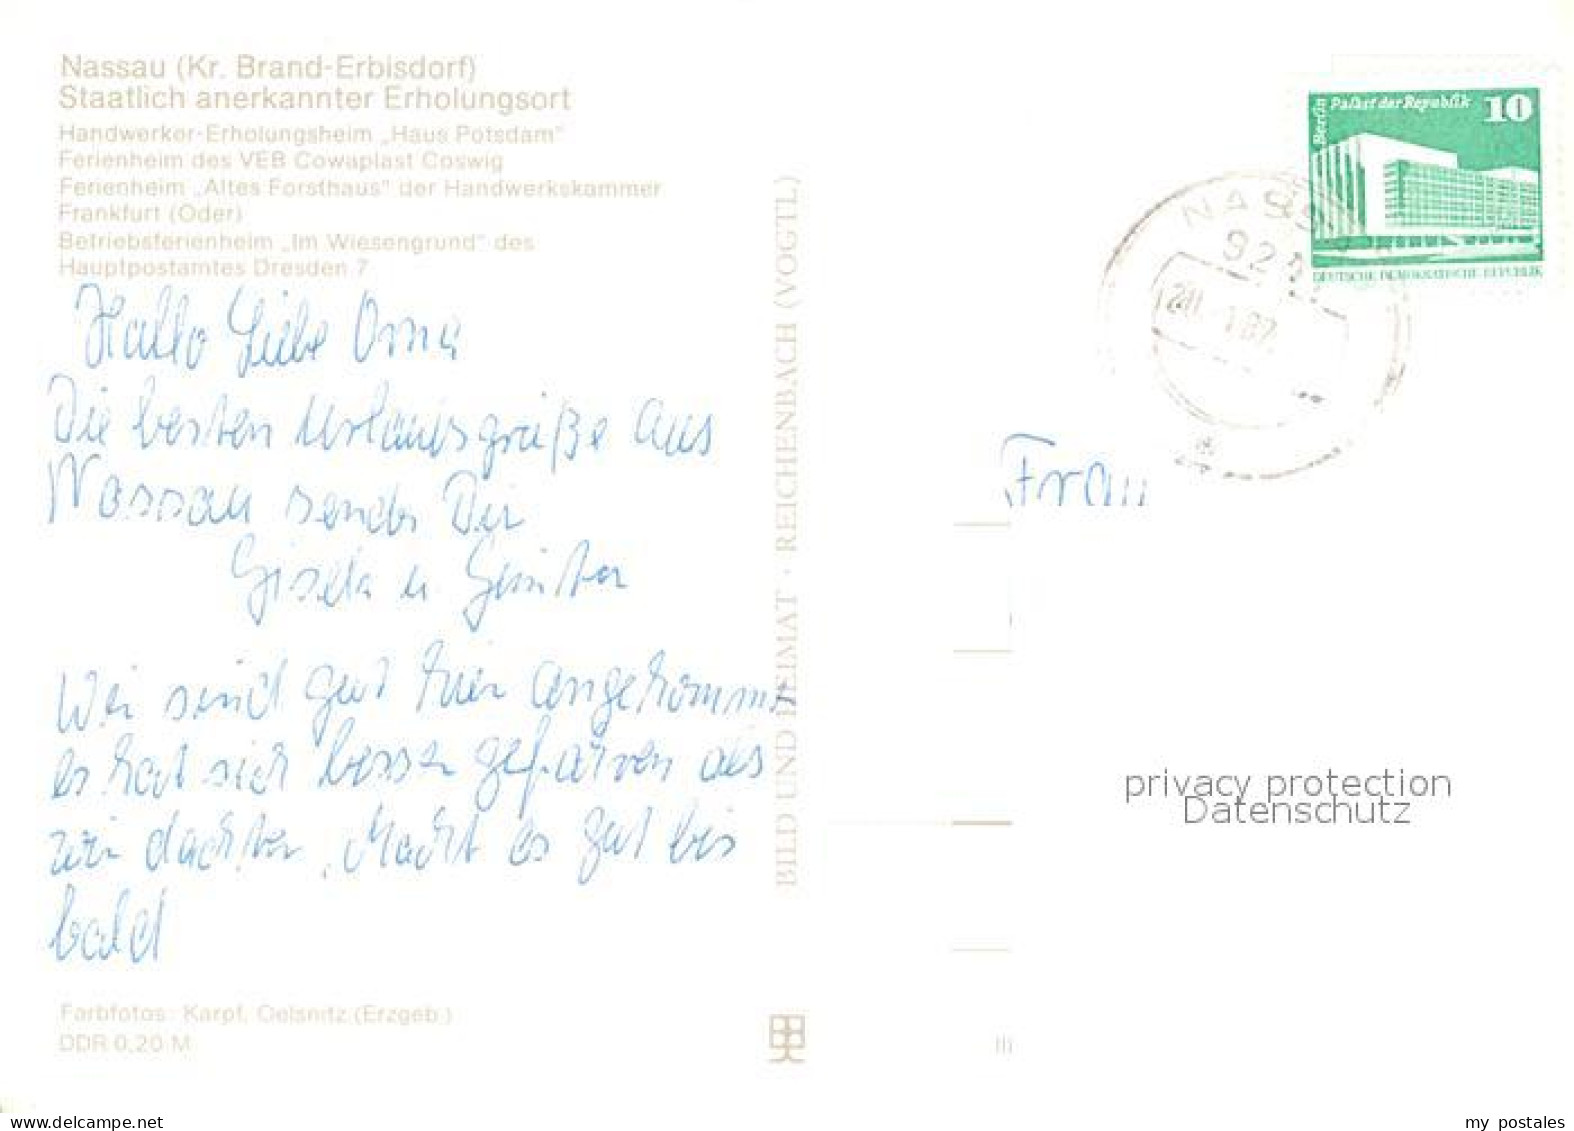 Nassau (Kr. Brand-Erbisdorf)
Staatlich anerkannter Erholungsort
Handwerker-Erholungsheim „Haus Potsdam“
Ferienheim des VEB Cowaplast Coswig
Ferienheim „Altes Forsthaus“ der Handwerkskammer
Frankfurt (Oder)
Betriebsferienheim „Im Wiesengrund“ des
Hauptpostamtes Dresden 7
Hallo Liebe Oma
Die besten Urlaubsgrüße aus
Nassau sendet Dir
Gisela u. Günter
Wir sind gut hier angekommen
es hat sich besser gefahren als
wir dachten. Macht es gut bis
bald
Farbfotos: Karpf, Oelsnitz (Erzgeb.)
DDR 0,20 M
BILD UND HEIMAT · REICHENBACH (VOGTL)
Berlin Palast der Republik 10
DEUTSCHE DEMOKRATISCHE REPUBLIK
NASSAU
Frau
privacy protection
Datenschutz
www.delcampe.net
my_postales